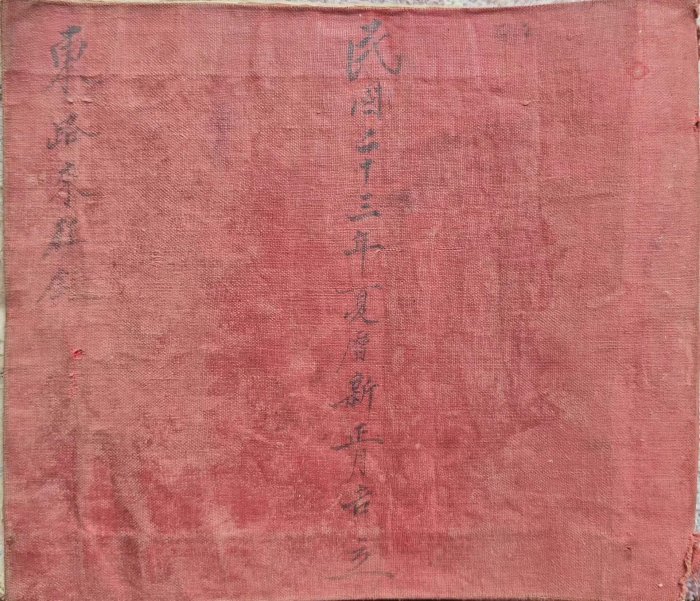 民國二十三年夏曆新正月吉立
東路